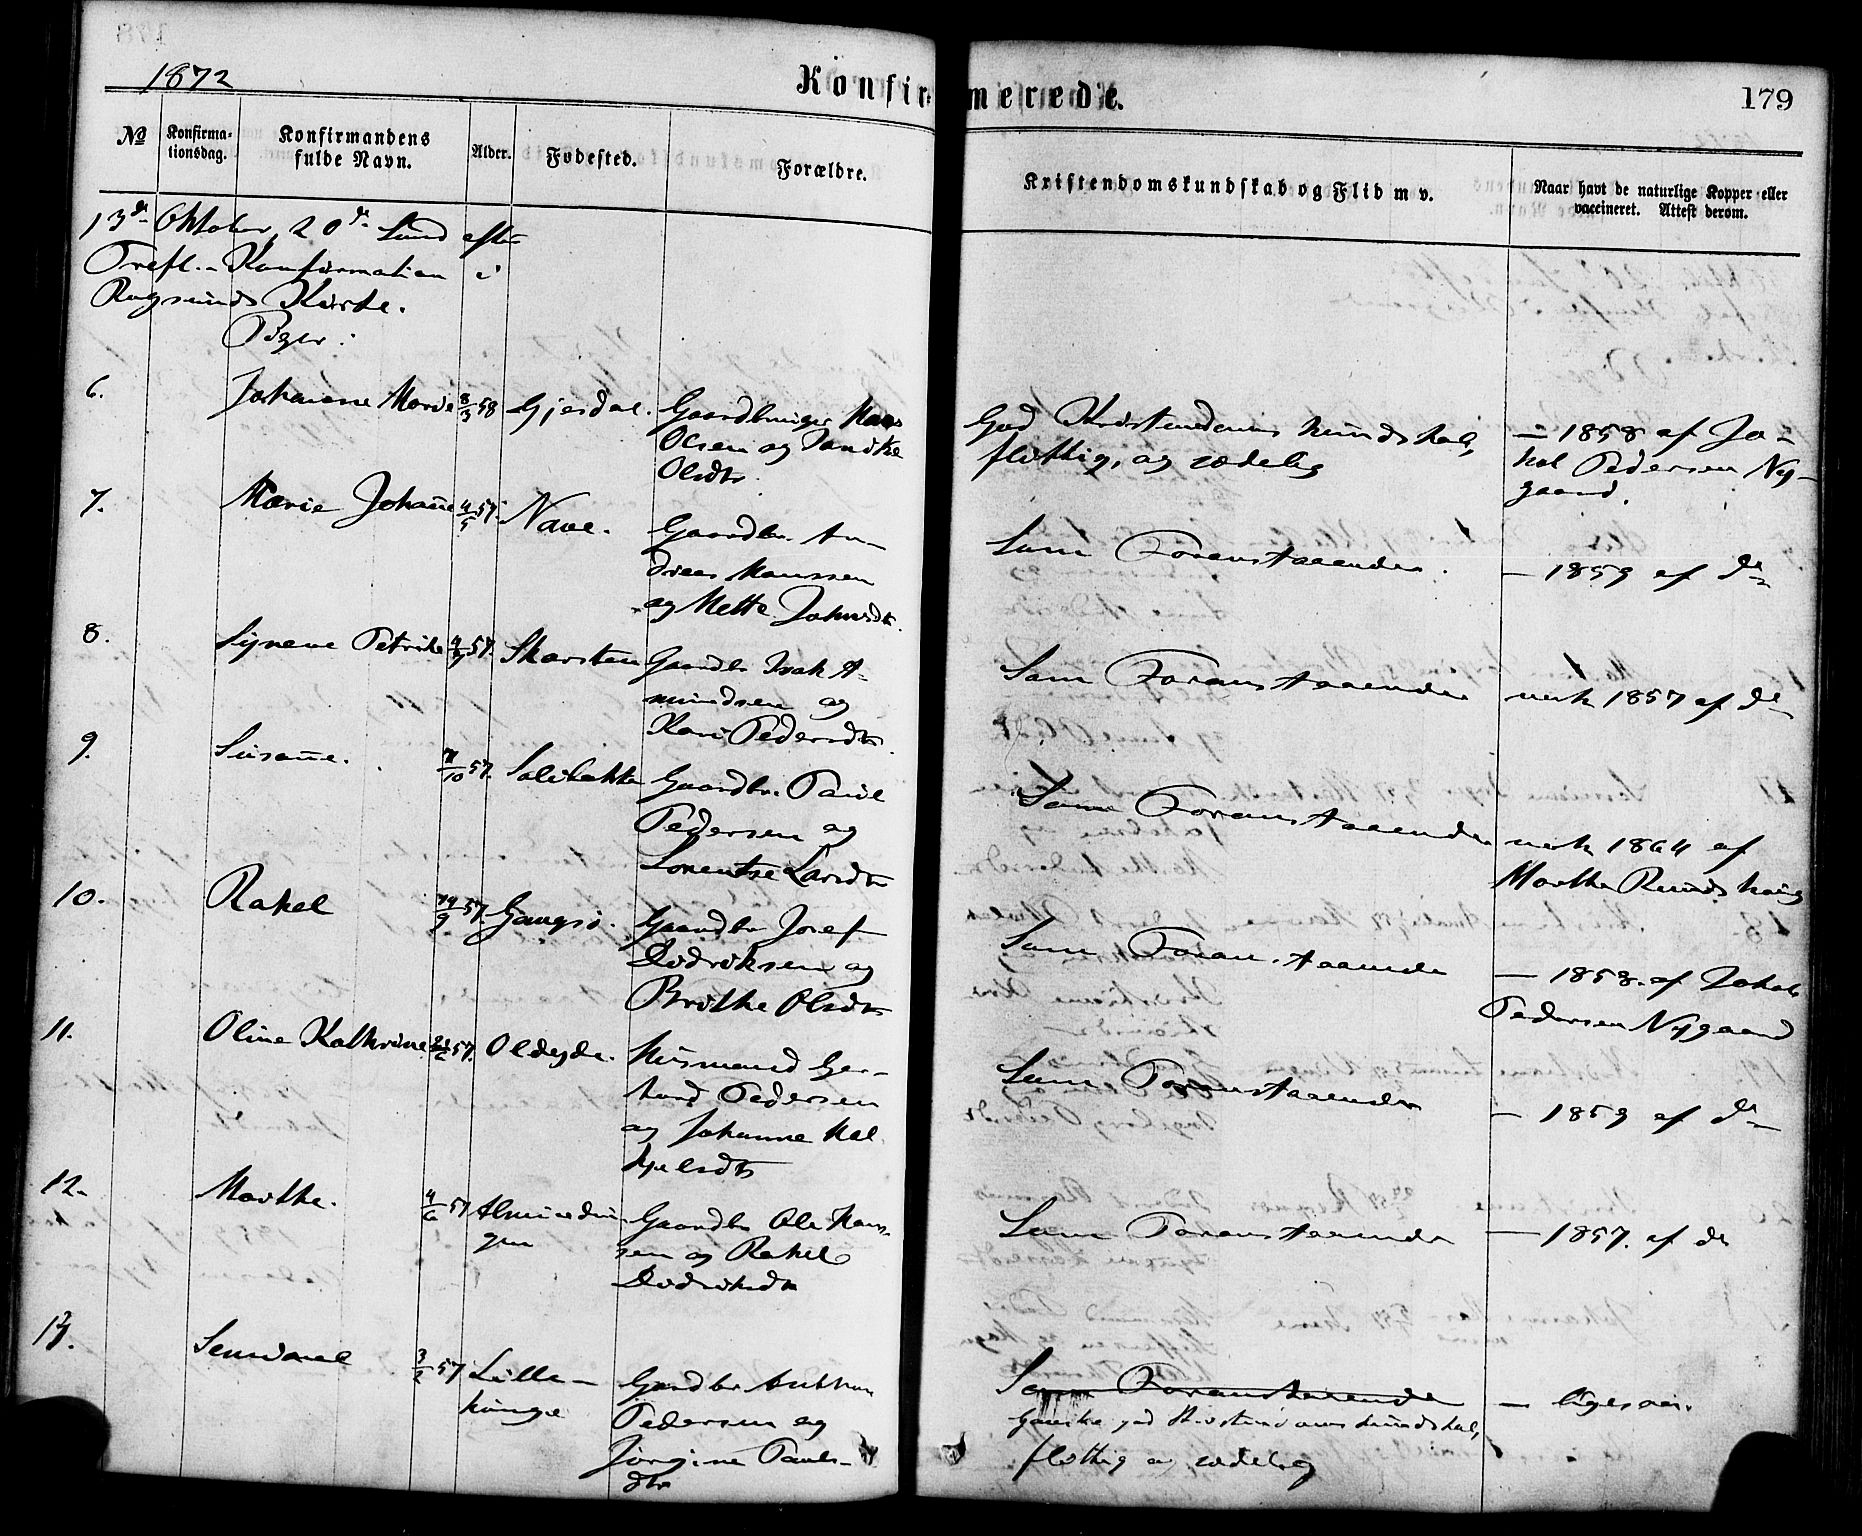 1872
Konfirmerede.
179
№
Konfirma-
tionsdag.
Konfirmandens
fulde Navn.
Alder.
Fødested.
Forældre.
Kristendomskundskab og Flid m v.
Naar havt de naturlige Kopper eller
vaccineret. Attest derom.
13de Oktober, 20de Sønd efter
Trefl. - Konfirmation i
Rugsunds Kirke.
Piger:
6.
Johanne Marie
8/3 58
Gjesdal.
Gaardbruger
Olsen og
Olsdtr.
God Kristendoms kundskab,
flittig, og sædelig
- 1858 af Ja-
kob Pedersen Ny-
gaard.
7.
Marie Johanne
4/5 57.
Nave.
Gaardbr. An-
dreas Monssen
og Mette Johnsdtr.
Som Foranstaaende.
- 1859 af do
8.
Synneve Petrike
57.
Skorsten
Gaardbr Isak A-
mundsen og
Kari Pedersdtr.
Som Foranstaaende
vacc 1857 af do
9.
Susanne.
7/10 57.
Gaardbr. Paul
Pedersen og
Lorentse Larsdtr
Som Foranstaaende
vacc 1864 af
Marthe
10.
Rakel
57.
Gangsø.
Gaardbr Josef
Didriksen og
Brithe Olsdtr
Som Foranstaaende
- 1858. af Jakob
Pedersen Nygaard
11.
Oline Kathrine
57.
Oldeyde.
Husmand Ger-
hard Pedersen
og Johanne Hal
kjelsdtr
Som Foranstaaende
- 1859 af do
12.
Marthe.
4/6 57
Almendin
gen
Gaardbr Ole Hans-
sen og Rakel
Didriksdtr
Som Foranstaaende
- 1857. af do
13.
3/2 57
Lille-
Gaardbr Anthon
Pedersen og
Jørgine Pauls-
dtr
Som Foranstaaende
Ganske god Kristendomskundskab,
flittig og sædelig
- ligesaa.